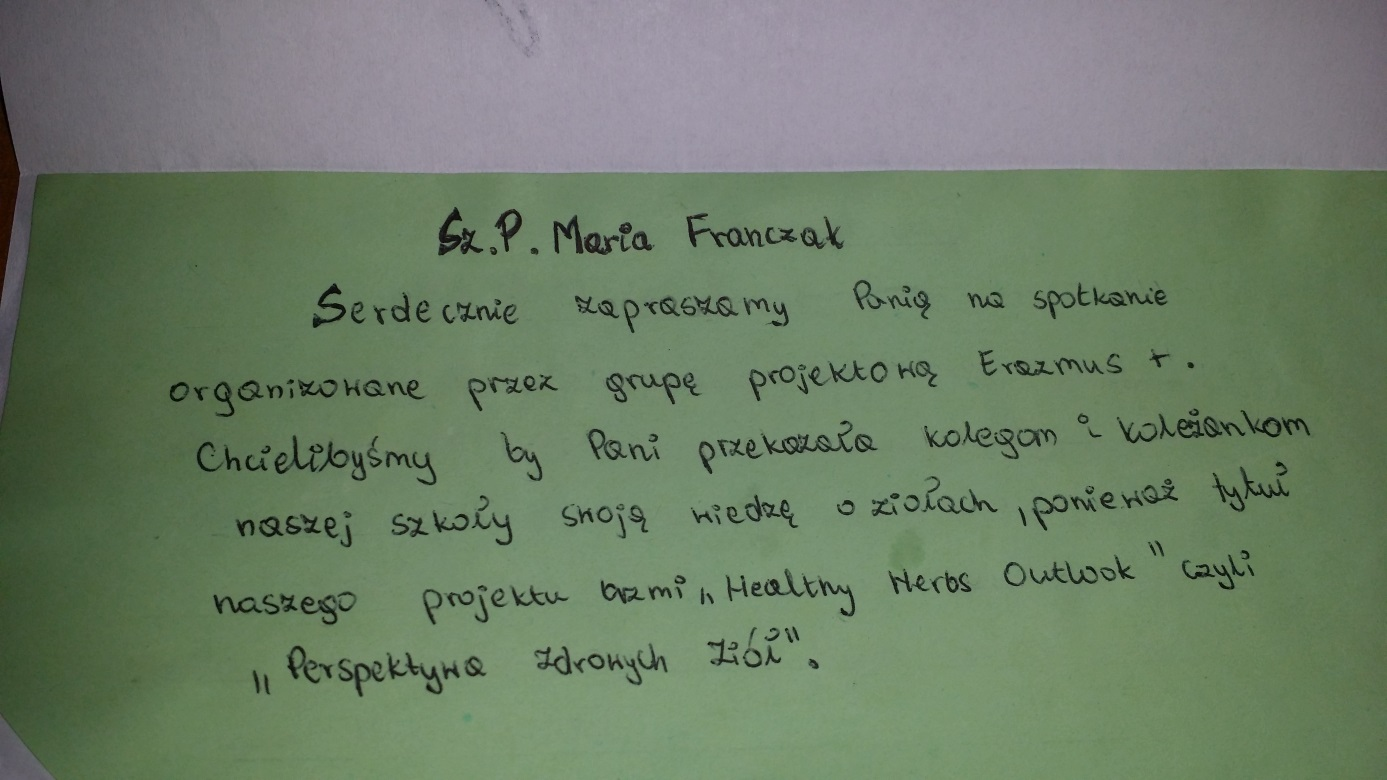 Sz.P. Maria Franczak
Serdecznie zapraszamy Panią na spotkanie
organizowane przez grupę projektową Erazmus +.
Chcielibyśmy by Pani przekazała kolegom i koleżankom
naszej szkoły swoją wiedzę o ziołach, ponieważ tytuł
naszego projektu brzmi „Healthy Herbs Outlook" czyli
„Perspektywa zdrowych ziół".